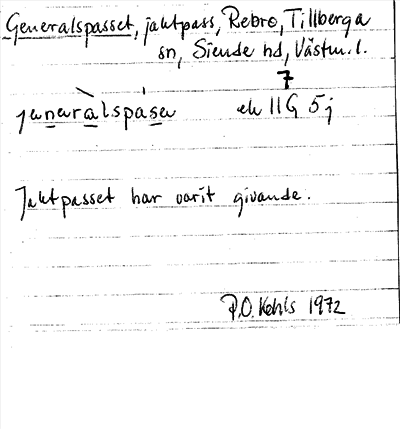 Generalspasset, jaktpass, Rebro, Tillberga
sn, Siende hd, Västm.l.
7
jenerálspàsa ek 11G 5j
Jaktpasset har varit givande.
P.O. Kehls 1972